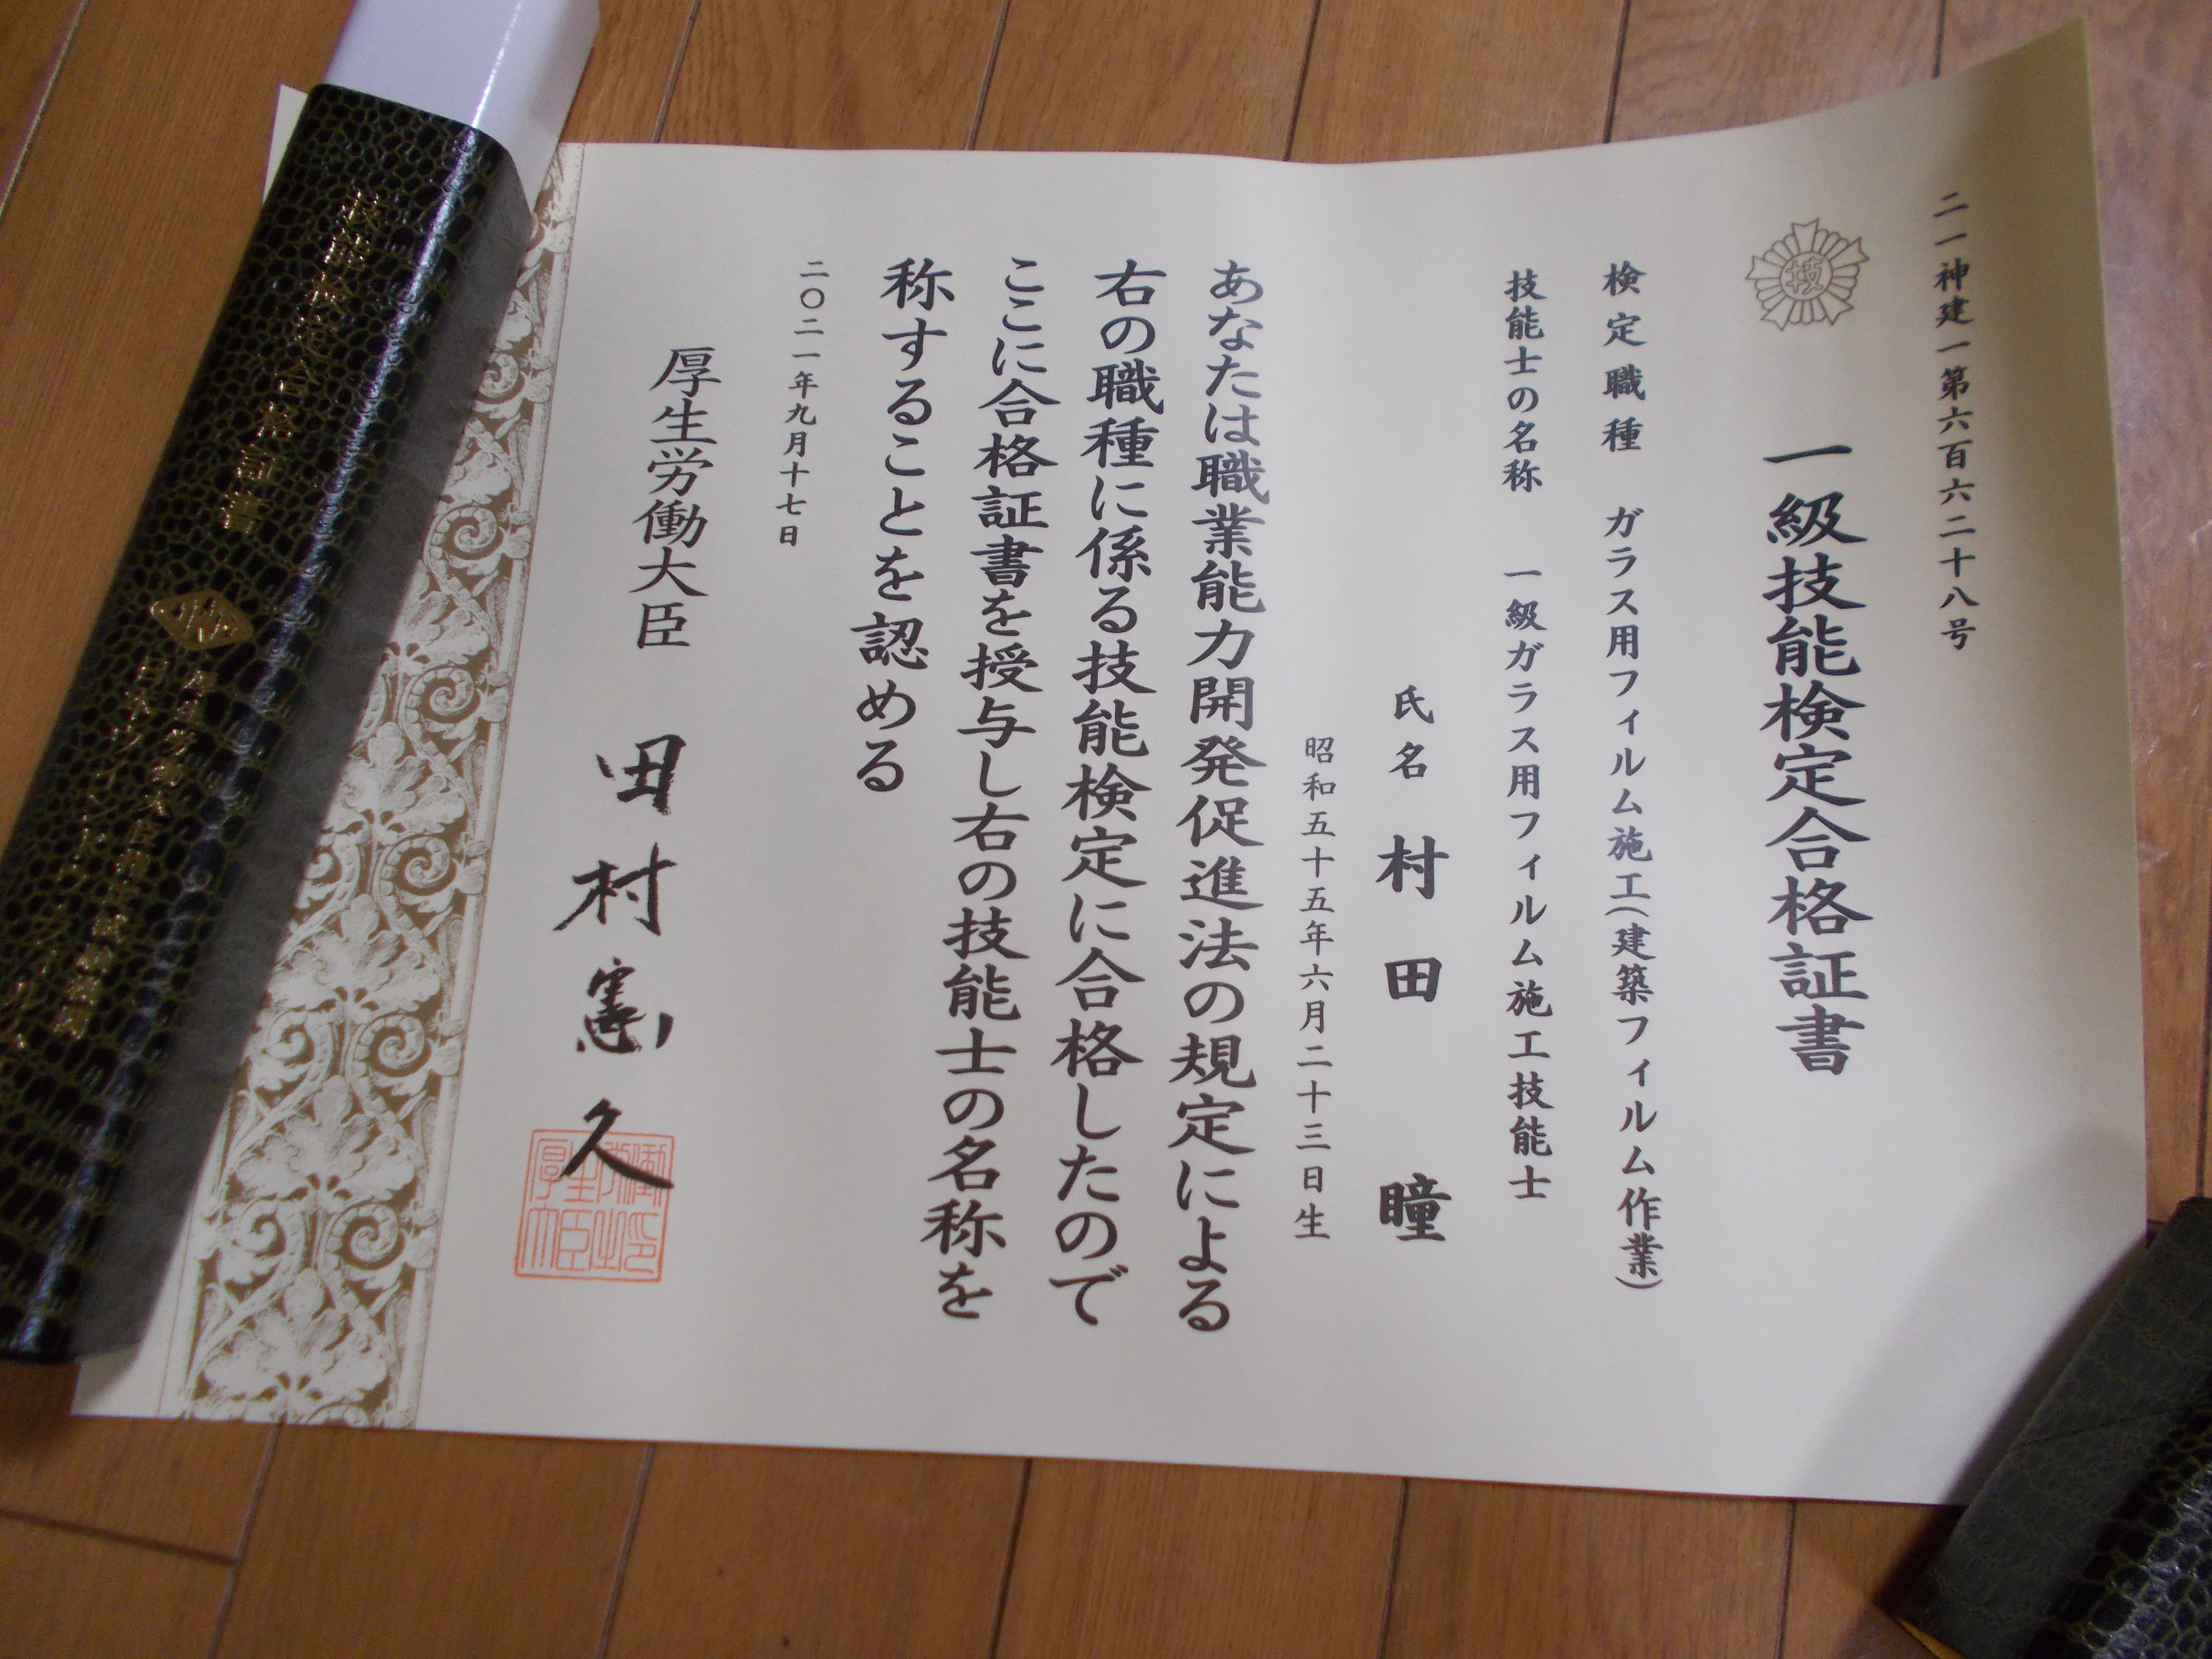 二一神建一第六百六二十八号
技
一級技能検定合格証書
検定職種 ガラス用フィルム施工(建築フィルム作業)
技能士の名称 一級ガラス用フィルム施工技能士
氏名 村田 瞳
昭和五十五年六月二十三日生
あなたは職業能力開発促進法の規定による
右の職種に係る技能検定に合格したので
ここに合格証書を授与し右の技能士の名称を
称することを認める
二〇二一年九月十七日
厚生労働大臣 田村憲久
技能検定合格証書